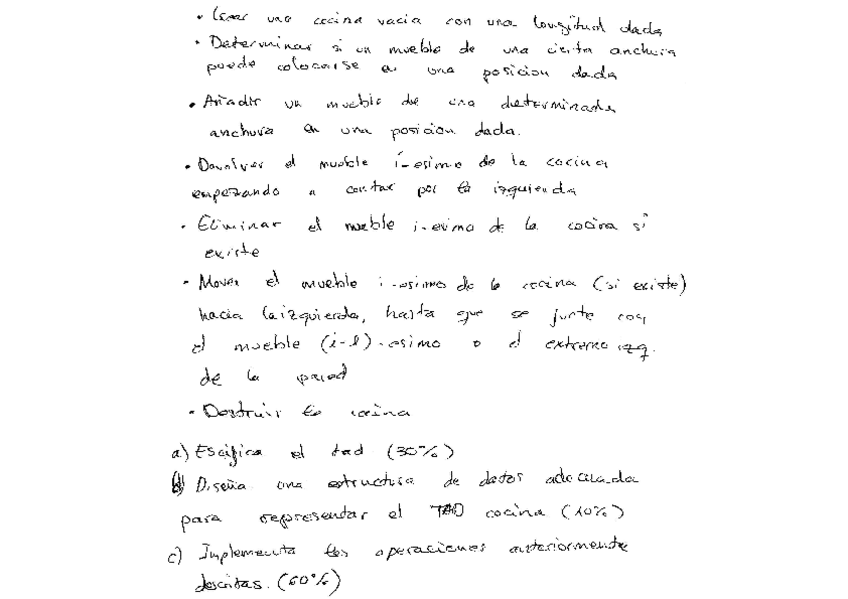 • Crear una cocina vacia con una longitud dada
• Determinar si un mueble de una cierta anchura
puede colocarse en una posicion dada
• Añadir un mueble de una determinada
anchura en una posicion dada.
• Devolver el mueble i-esimo de la cocina
empezando a contar por la izquierda
• Eliminar el mueble i-esimo de la cocina si
existe
• Mover el mueble i-esimo de la cocina (si existe)
hacia la izquierda, hasta que se junte con
el mueble (i-1)-esimo o el extremo izq.
de la pared
• Destruir la cocina
a) Escifica el tad (30%)
b) Diseña una estructura de datos adecuada
para representar el TAD cocina (10%)
c) Implementa las operaciones anteriormente
descritas. (60%)